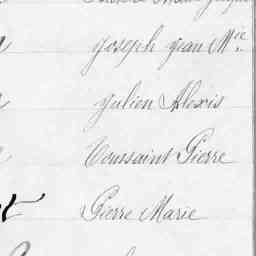 Joseph Jean Mie
Julien Alexis
Toussaint Pierre
Pierre Marie